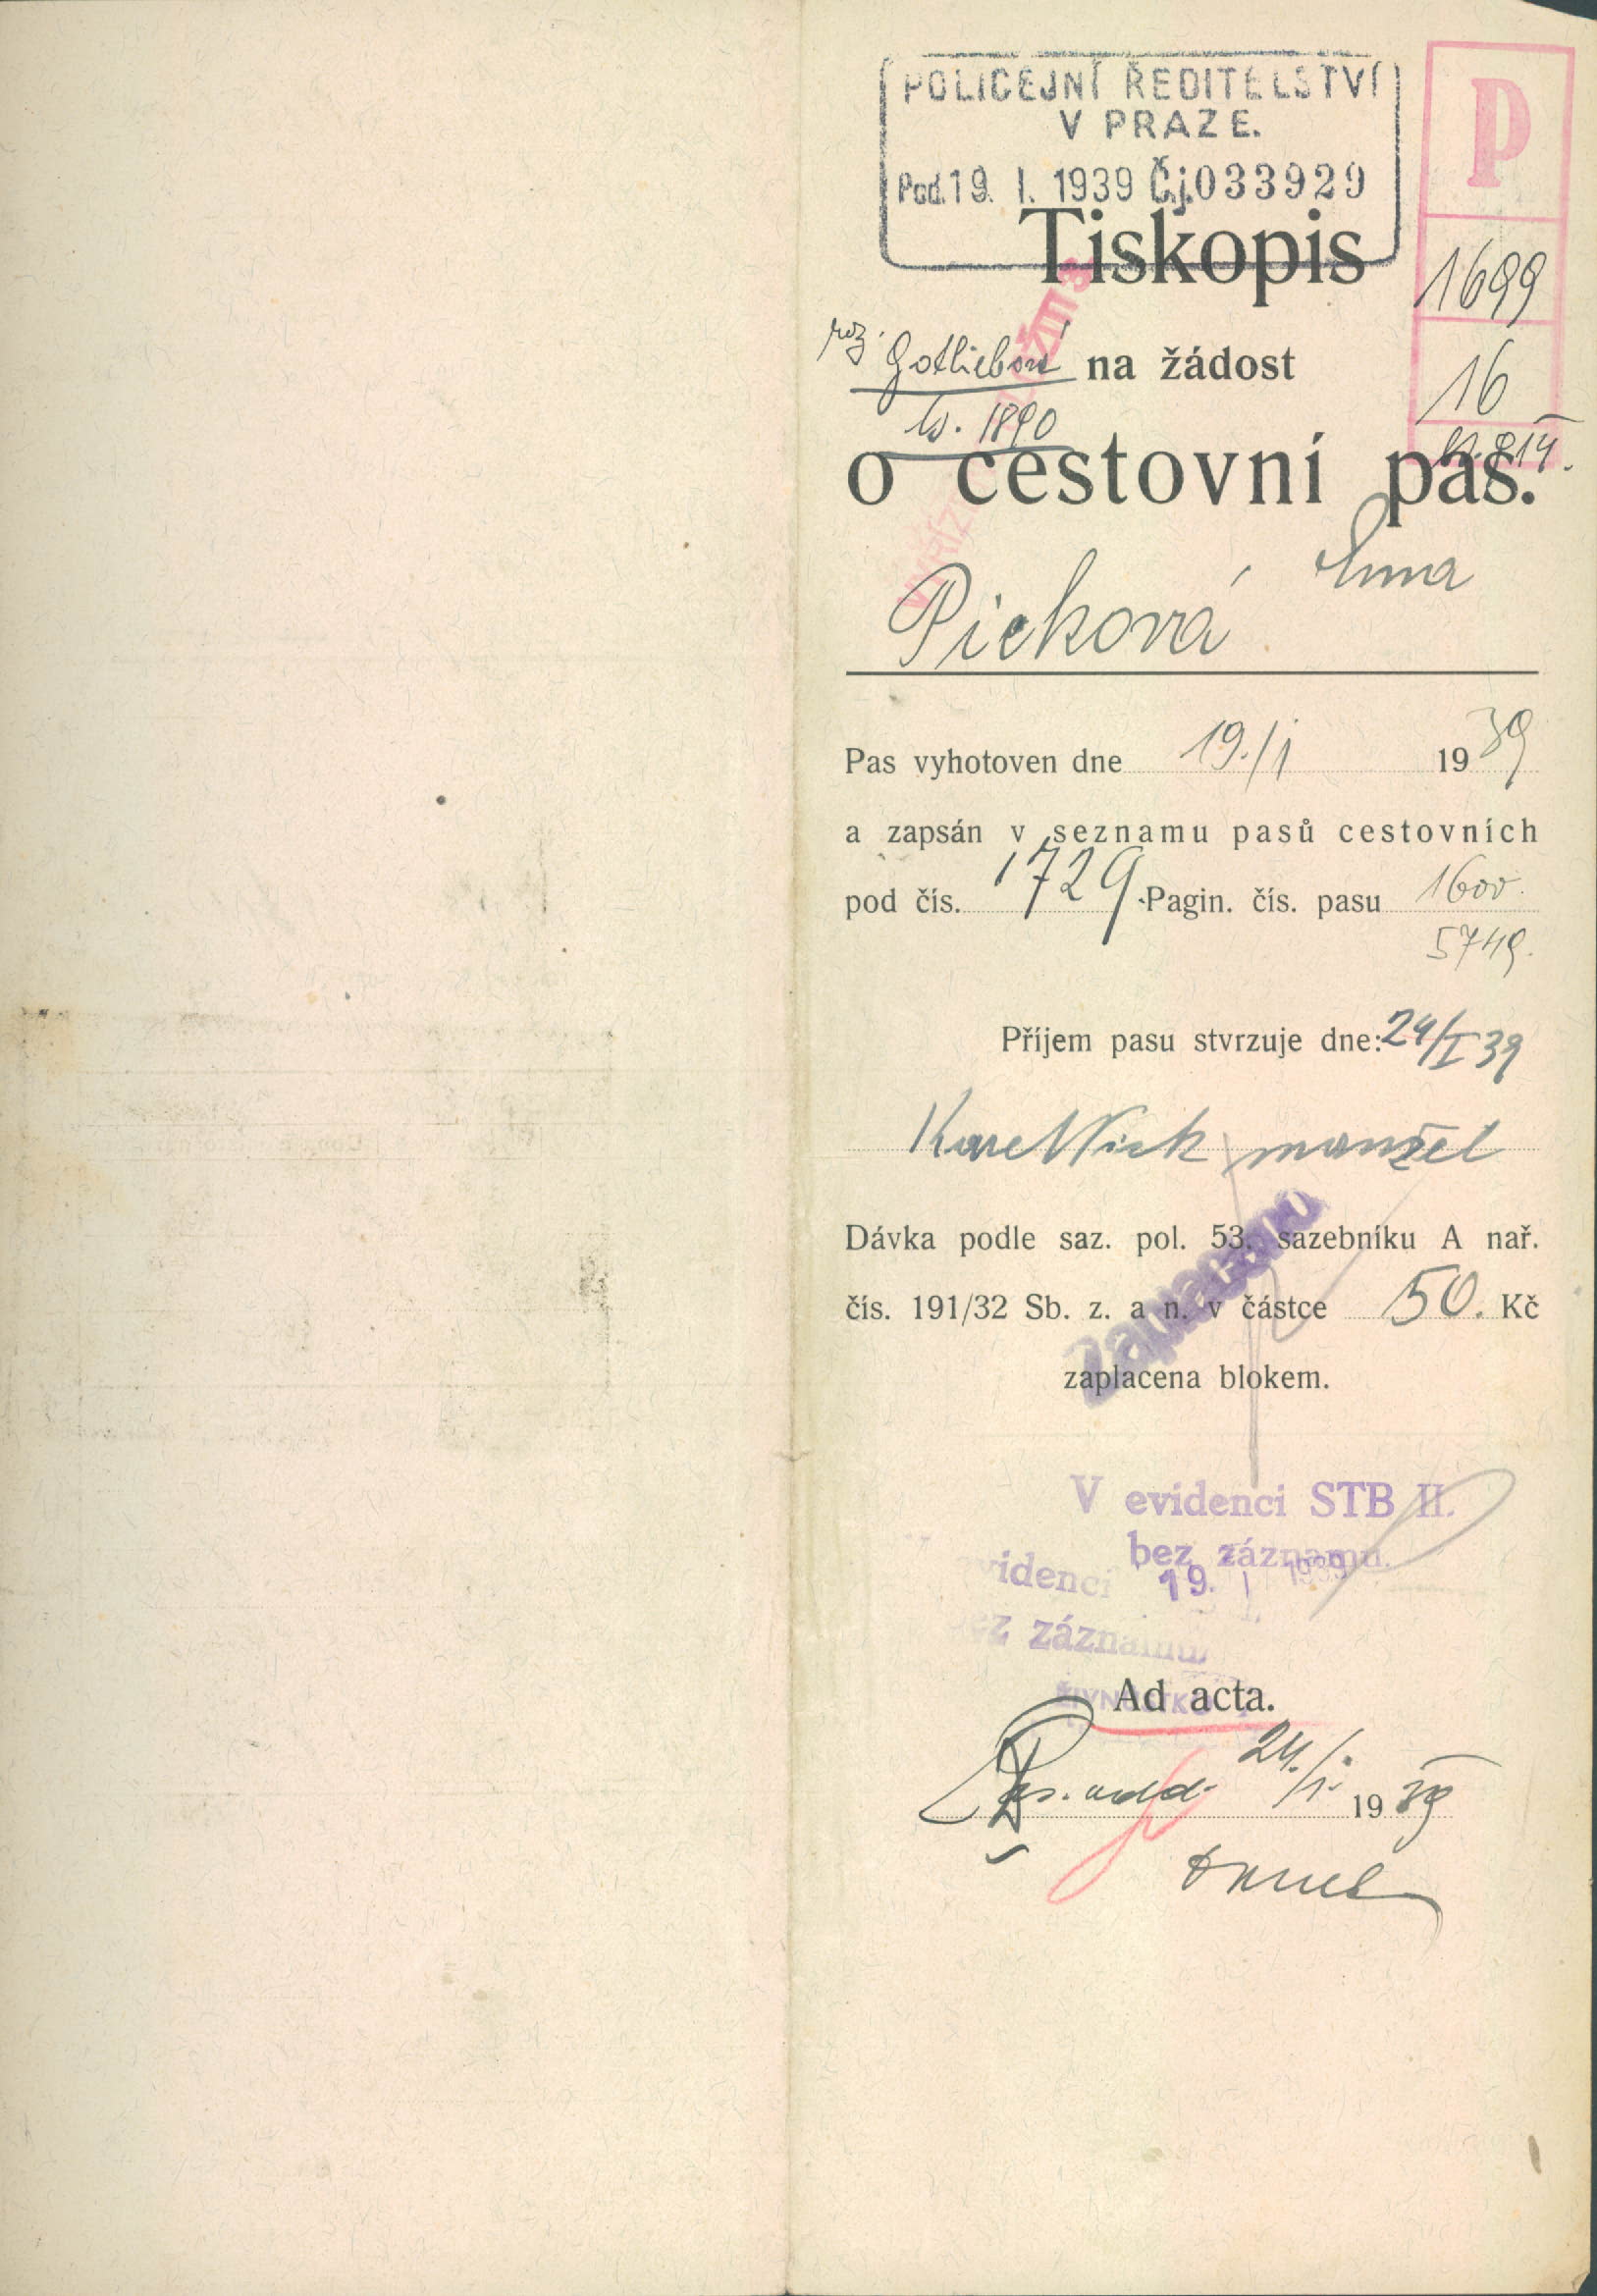 POLICEJNÍ ŘEDITELSTVÍ
V PRAZE.
Pod. 19. I. 1939 Č.j. 033929
P
Tiskopis
1699
roz. Gotliebová na žádost
16
1890
o cestovní pas.
Picková
Pas vyhotoven dne 19./I 1939
a zapsán v seznamu pasů cestovních
pod čís. 1729. Pagin. čís. pasu 1600.
5749.
Příjem pasu stvrzuje dne: 24/I 39
Karel Pick manžel
Dávka podle saz. pol. 53, sazebníku A nař.
čís. 191/32 Sb. z. a n. v částce 50. Kč
Zaplaceno
zaplacena blokem.
V evidenci STB II.
bez záznamu.
19. I 1939
evidenci
bez záznamu
Ad acta.
24./I. 1939